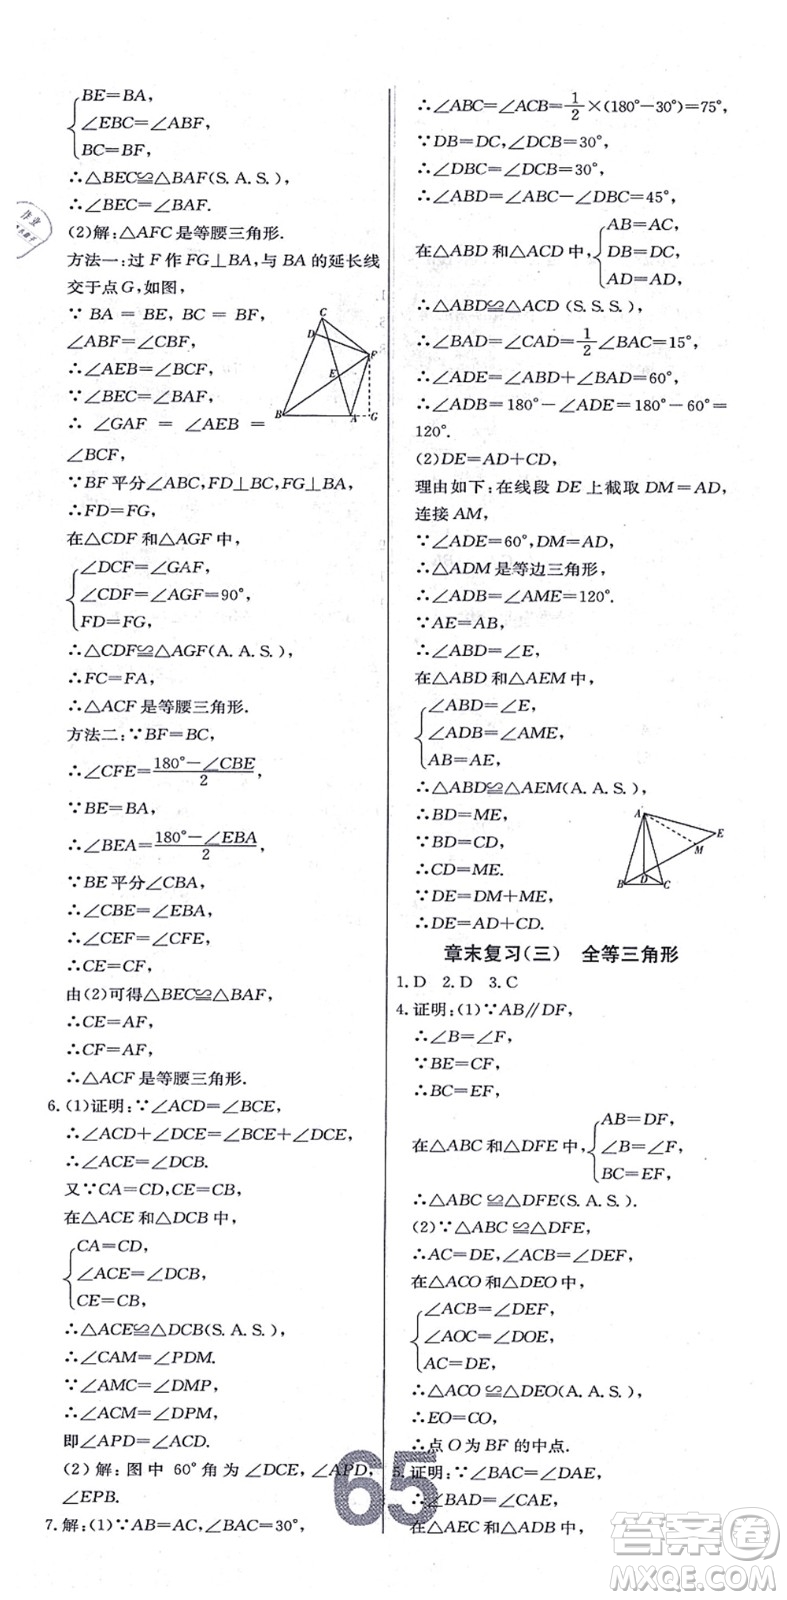 BE=BA,
∠EBC=∠ABF,
BC=BF,
∴△BEC≌△BAF(S.A.S.),
∴∠BEC=∠BAF.
(2)解:△AFC是等腰三角形.
方法一:过F作FG⊥BA,与BA的延长线
交于点G,如图,
∵BA=BE,BC=BF,
∠ABF=∠CBF,
∴∠AEB=∠BCF,
∵∠BEC=∠BAF,
∴∠GAF=∠AEB=
∠BCF,
∵BF平分∠ABC,FD⊥BC,FG⊥BA,
∴FD=FG,
在△CDF和△AGF中,
∠DCF=∠GAF,
∠CDF=∠AGF=90°,
FD=FG,
∴△CDF≌△AGF(A.A.S.),
∴FC=FA,
∴△ACF是等腰三角形.
方法二:∵BF=BC,
∴∠CFE=(180°-∠CBE)/2,
∵BE=BA,
∴∠BEA=(180°-∠EBA)/2,
∵BE平分∠CBA,
∴∠CBE=∠EBA,
∴∠CEF=∠CFE,
∴CE=CF,
由(2)可得△BEC≌△BAF,
∴CE=AF,
∴CF=AF,
∴△ACF是等腰三角形.
6.(1)证明:∵∠ACD=∠BCE,
∴∠ACD+∠DCE=∠BCE+∠DCE,
∴∠ACE=∠DCB.
又∵CA=CD,CE=CB,
在△ACE和△DCB中,
CA=CD,
∠ACE=∠DCB,
CE=CB,
∴△ACE≌△DCB(S.A.S.),
∴∠CAM=∠PDM.
∵∠AMC=∠DMP,
∴∠ACM=∠DPM,
即∠APD=∠ACD.
(2)解:图中60°角为∠DCE,∠APD,
∠EPB.
7.解:(1)∵AB=AC,∠BAC=30°,
∴∠ABC=∠ACB=1/2×(180°-30°)=75°,
∵DB=DC,∠DCB=30°,
∴∠DBC=∠DCB=30°,
∴∠ABD=∠ABC-∠DBC=45°,
在△ABD和△ACD中,
AB=AC,
DB=DC,
AD=AD,
∴△ABD≌△ACD(S.S.S.),
∴∠BAD=∠CAD=1/2∠BAC=15°,
∴∠ADE=∠ABD+∠BAD=60°,
∴∠ADB=180°-∠ADE=180°-60°=
120°.
(2)DE=AD+CD,
理由如下:在线段DE上截取DM=AD,
连接AM,
∵∠ADE=60°,DM=AD,
∴△ADM是等边三角形,
∴∠ADB=∠AME=120°.
∵AE=AB,
∴∠ABD=∠E,
在△ABD和△AEM中,
∠ABD=∠E,
∠ADB=∠AME,
AB=AE,
∴△ABD≌△AEM(A.A.S.),
∴BD=ME,
∵BD=CD,
∴CD=ME.
∵DE=DM+ME,
∴DE=AD+CD.
章末复习(三) 全等三角形
1.D 2.D 3.C
4.证明:(1)∵AB∥DF,
∴∠B=∠F,
∵BE=CF,
∴BC=EF,
在△ABC和△DFE中,
AB=DF,
∠B=∠F,
BC=EF,
∴△ABC≌△DFE(S.A.S.).
(2)∵△ABC≌△DFE,
∴AC=DE,∠ACB=∠DEF,
在△ACO和△DEO中,
∠ACB=∠DEF,
∠AOC=∠DOE,
AC=DE,
∴△ACO≌△DEO(A.A.S.),
∴EO=CO,
∴点O为BF的中点.
5.证明:∵∠BAC=∠DAE,
∴∠BAD=∠CAE,
在△AEC和△ADB中,
65
答案圈